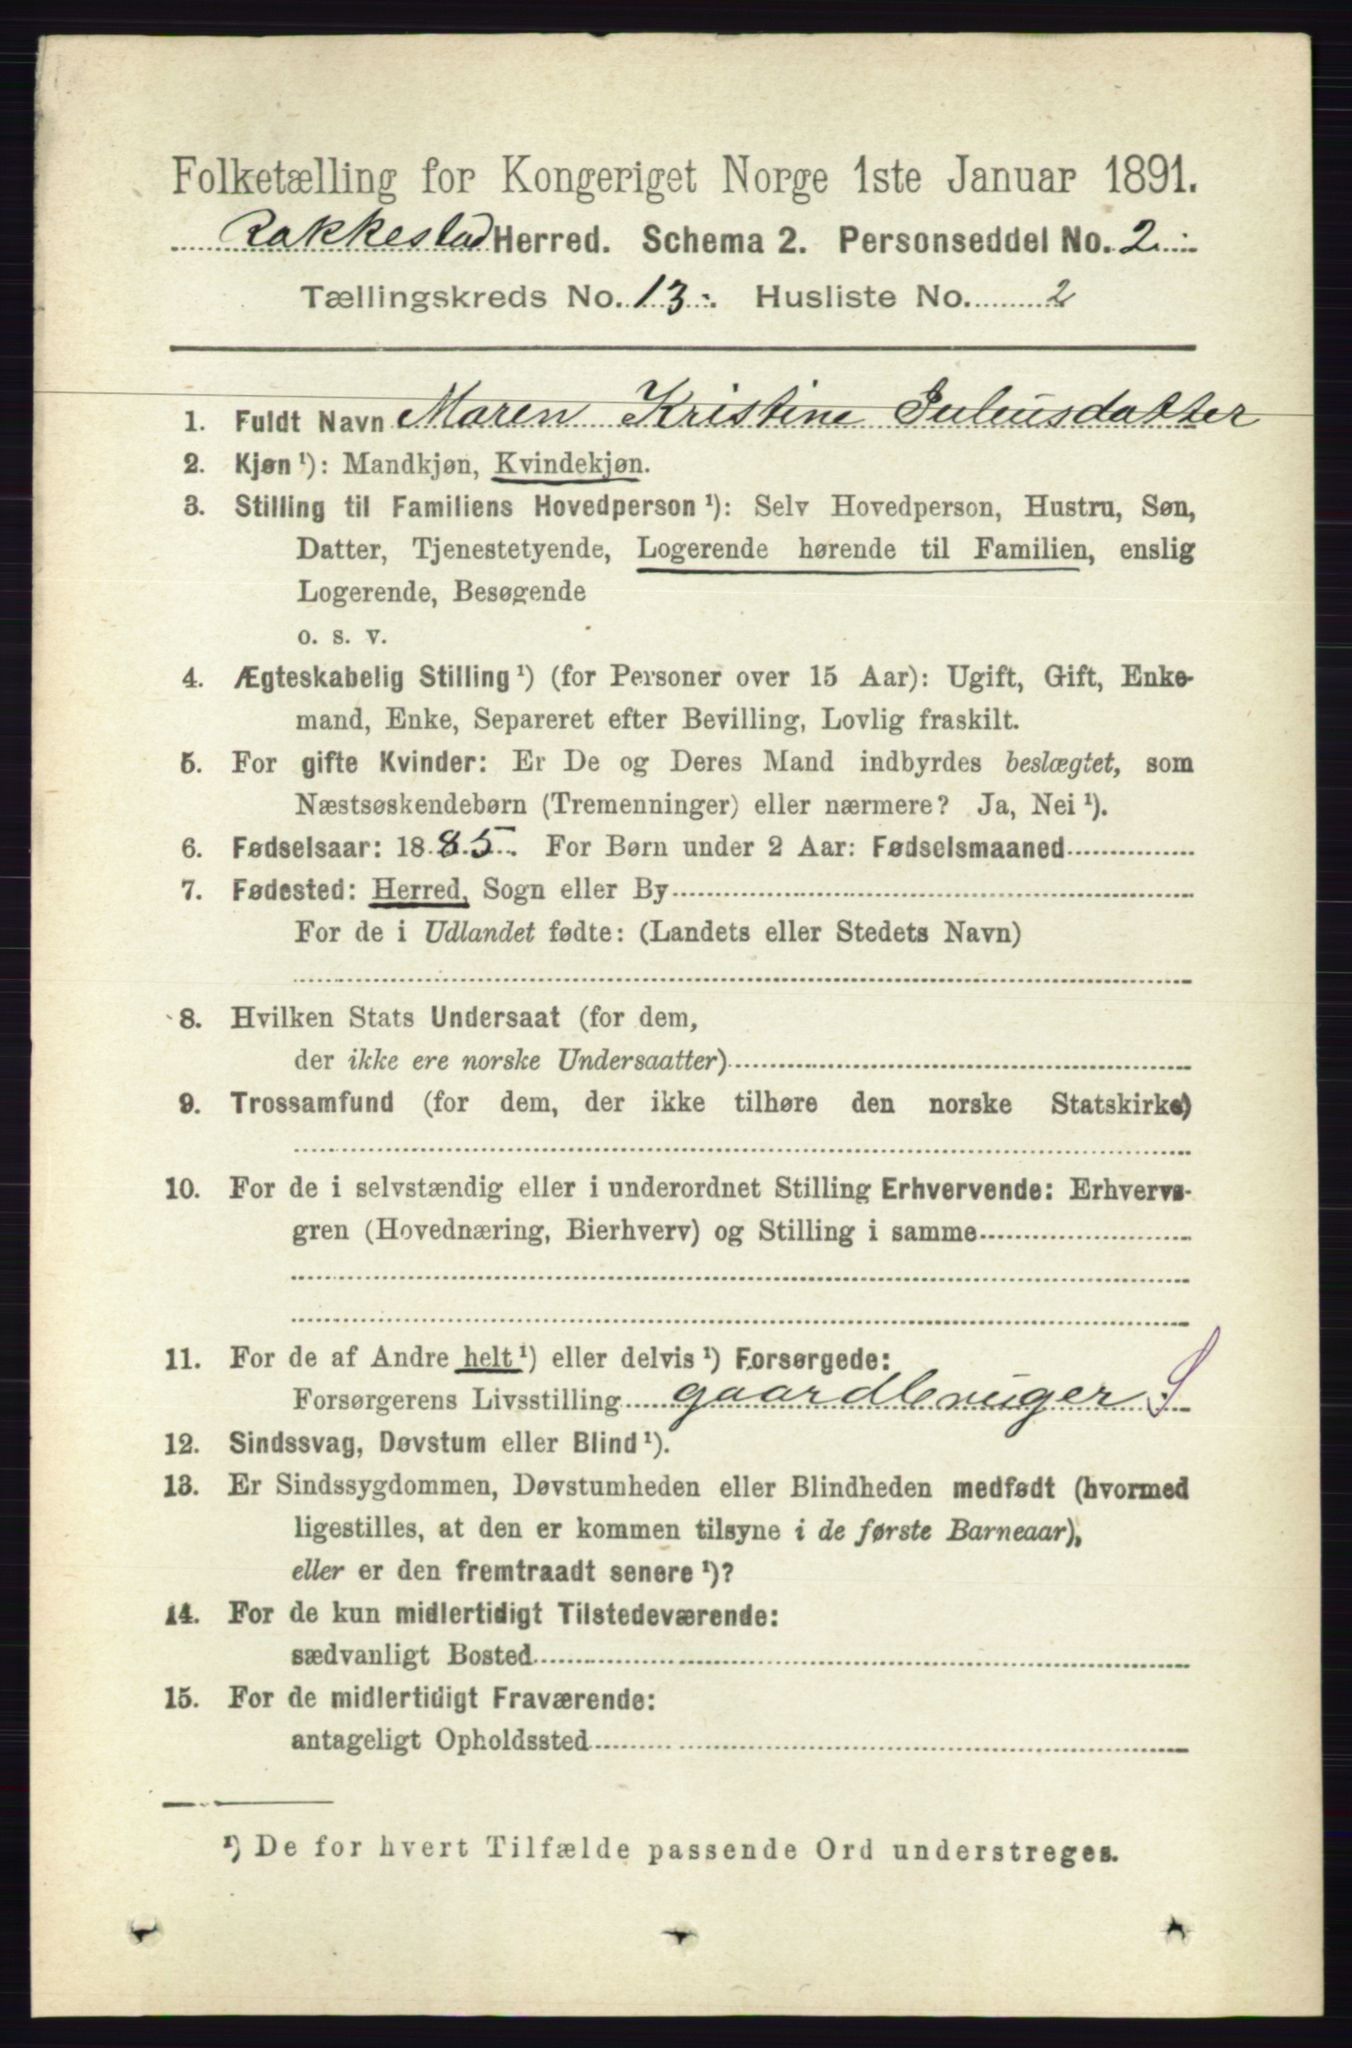 Folketælling for Kongeriget Norge 1ste Januar 1891.
Rakkestad Herred. Schema 2. Personseddel No. 2
Tællingskreds No. 13. Husliste No. 2
1. Fuldt Navn Maren Kristine Juliusdatter
2. Kjøn ¹): Mandkjøn, Kvindekjøn.
3. Stilling til Familiens Hovedperson ¹): Selv Hovedperson, Hustru, Søn,
Datter, Tjenestetyende, Logerende hørende til Familien, enslig
Logerende, Besøgende
o. s. v.
4. Ægteskabelig Stilling ¹) (for Personer over 15 Aar): Ugift, Gift, Enke-
mand, Enke, Separeret efter Bevilling, Lovlig fraskilt.
5. For gifte Kvinder: Er De og Deres Mand indbyrdes beslægtet, som
Næstsøskendebørn (Tremenninger) eller nærmere? Ja, Nei ¹).
6. Fødselsaar: 1885. For Børn under 2 Aar: Fødselsmaaned
7. Fødested: Herred, Sogn eller By
For de i Udlandet fødte: (Landets eller Stedets Navn)
8. Hvilken Stats Undersaat (for dem,
der ikke ere norske Undersaatter)
9. Trossamfund (for dem, der ikke tilhøre den norske Statskirke)
10. For de i selvstændig eller i underordnet Stilling Erhvervende: Erhvervs-
gren (Hovednæring, Bierhverv) og Stilling i samme
11. For de af Andre helt ¹) eller delvis ¹) Forsørgede:
Forsørgerens Livsstilling gaardbruger S
12. Sindssvag, Døvstum eller Blind ¹).
13. Er Sindssygdommen, Døvstumheden eller Blindheden medfødt (hvormed
ligestilles, at den er kommen tilsyne i de første Barneaar),
eller er den fremtraadt senere ¹)?
14. For de kun midlertidigt Tilstedeværende:
sædvanligt Bosted
15. For de midlertidigt Fraværende:
antageligt Opholdssted
¹) De for hvert Tilfælde passende Ord understreges.